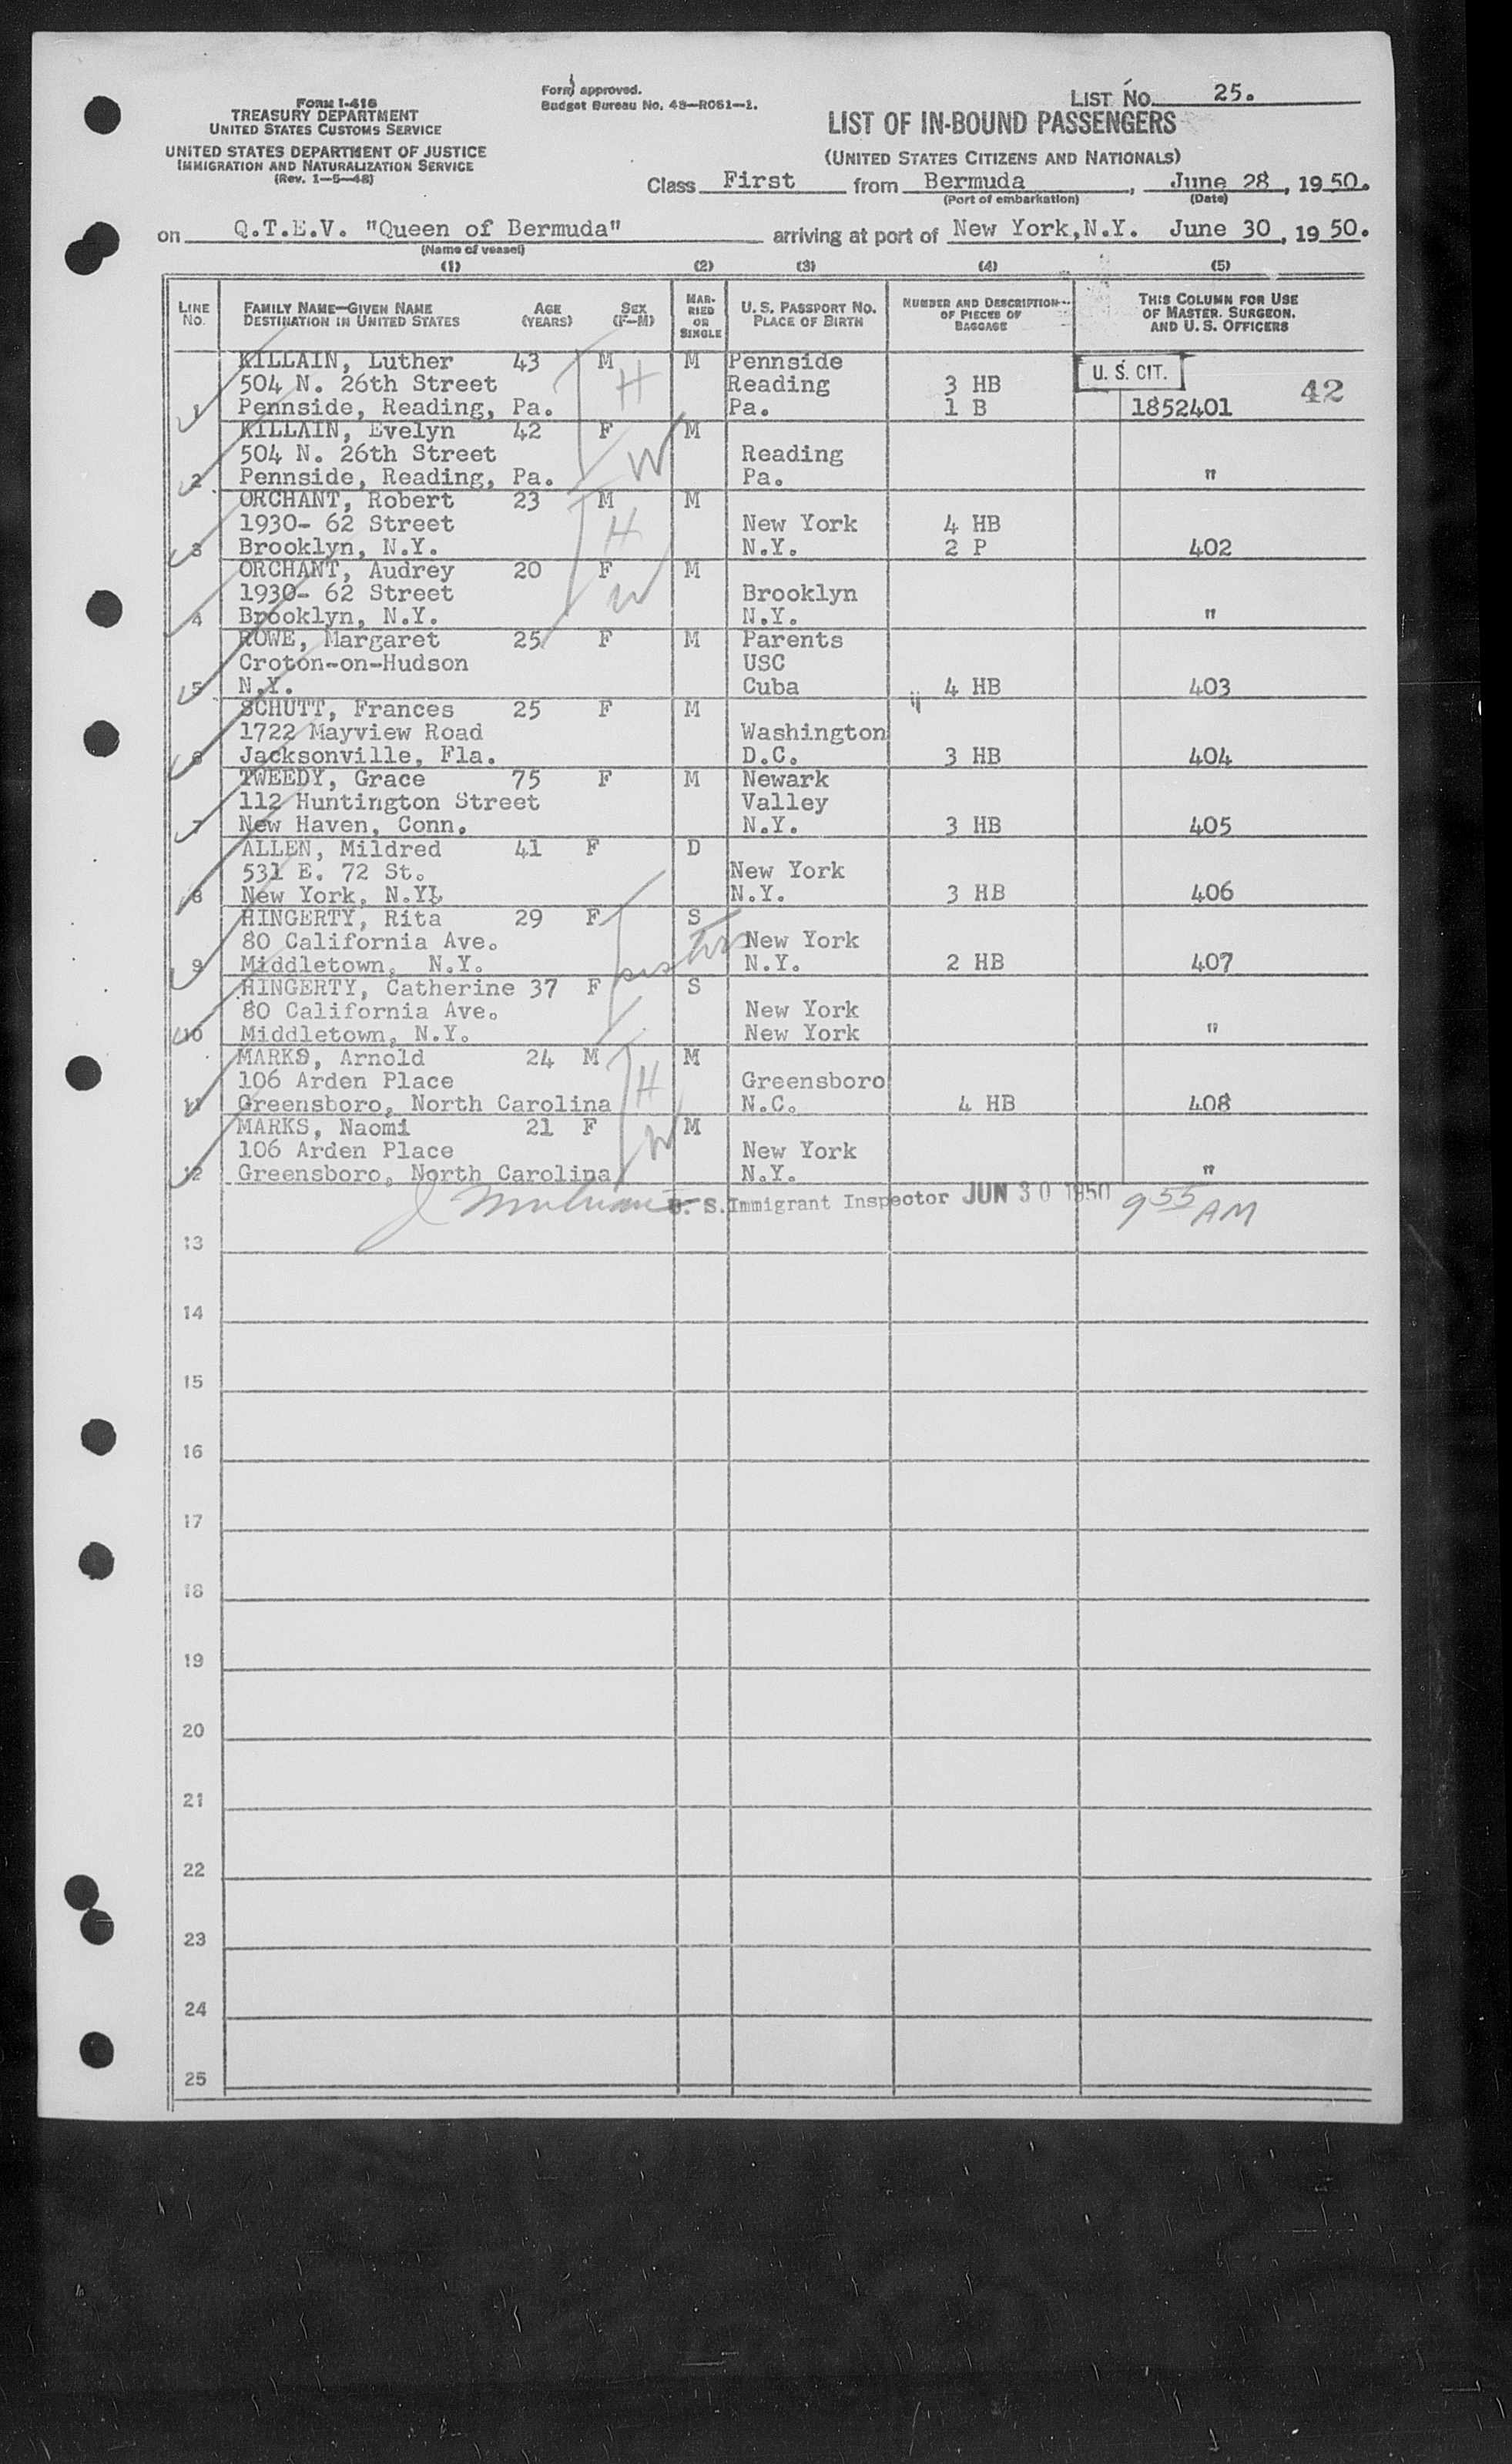 FORM I-416
TREASURY DEPARTMENT
UNITED STATES CUSTOMS SERVICE
UNITED STATES DEPARTMENT OF JUSTICE
IMMIGRATION AND NATURALIZATION SERVICE
(Rev. 1-5-48)
Form approved.
Budget Bureau No. 43-R051-1.
LIST No. 25.
LIST OF IN-BOUND PASSENGERS
(UNITED STATES CITIZENS AND NATIONALS)
Class First from Bermuda, June 28, 1950.
(Port of embarkation) (Date)
on Q.T.E.V. "Queen of Bermuda" arriving at port of New York, N.Y. June 30, 1950.
(Name of vessel)
(1) (2) (3) (4) (5)
LINE No. FAMILY NAME—GIVEN NAME DESTINATION IN UNITED STATES AGE (YEARS) SEX (F—M) MARRIED OR SINGLE U. S. PASSPORT NO. PLACE OF BIRTH NUMBER AND DESCRIPTION OF PIECES OF BAGGAGE THIS COLUMN FOR USE OF MASTER, SURGEON, AND U. S. OFFICERS
KILLAIN, Luther 43 M M Pennside U. S. CIT.
504 N. 26th Street H Reading 3 HB 42
1 Pennside, Reading, Pa. Pa. 1 B 1852401
KILLAIN, Evelyn 42 F M
504 N. 26th Street W Reading
2 Pennside, Reading, Pa. Pa. "
ORCHANT, Robert 23 M M
1930- 62 Street H New York 4 HB
3 Brooklyn, N.Y. N.Y. 2 P 402
ORCHANT, Audrey 20 F M
1930- 62 Street W Brooklyn
4 Brooklyn, N.Y. N.Y. "
ROWE, Margaret 25 F M Parents
Croton-on-Hudson USC
5 N.Y. Cuba 4 HB 403
SCHUTT, Frances 25 F M
1722 Mayview Road Washington
6 Jacksonville, Fla. D.C. 3 HB 404
TWEEDY, Grace 75 F M Newark
112 Huntington Street Valley
7 New Haven, Conn. N.Y. 3 HB 405
ALLEN, Mildred 41 F D
531 E. 72 St. New York
8 New York, N.Y. N.Y. 3 HB 406
HINGERTY, Rita 29 F S
80 California Ave. sisters New York
9 Middletown, N.Y. N.Y. 2 HB 407
HINGERTY, Catherine 37 F S
80 California Ave. New York
10 Middletown, N.Y. New York "
MARKS, Arnold 24 M M
106 Arden Place H Greensboro
11 Greensboro, North Carolina N.C. 4 HB 408
MARKS, Naomi 21 F M
106 Arden Place W New York
12 Greensboro, North Carolina N.Y. "
U. S. Immigrant Inspector JUN 30 1950 9 55 AM
13
14
15
16
17
18
19
20
21
22
23
24
25